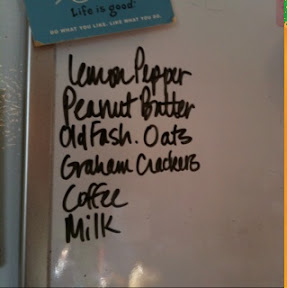 Life is good
DO WHAT YOU LIKE. LIKE WHAT YOU DO.
Lemon Pepper
Peanut Butter
Old Fash. Oats
Graham Crackers
Coffee
Milk